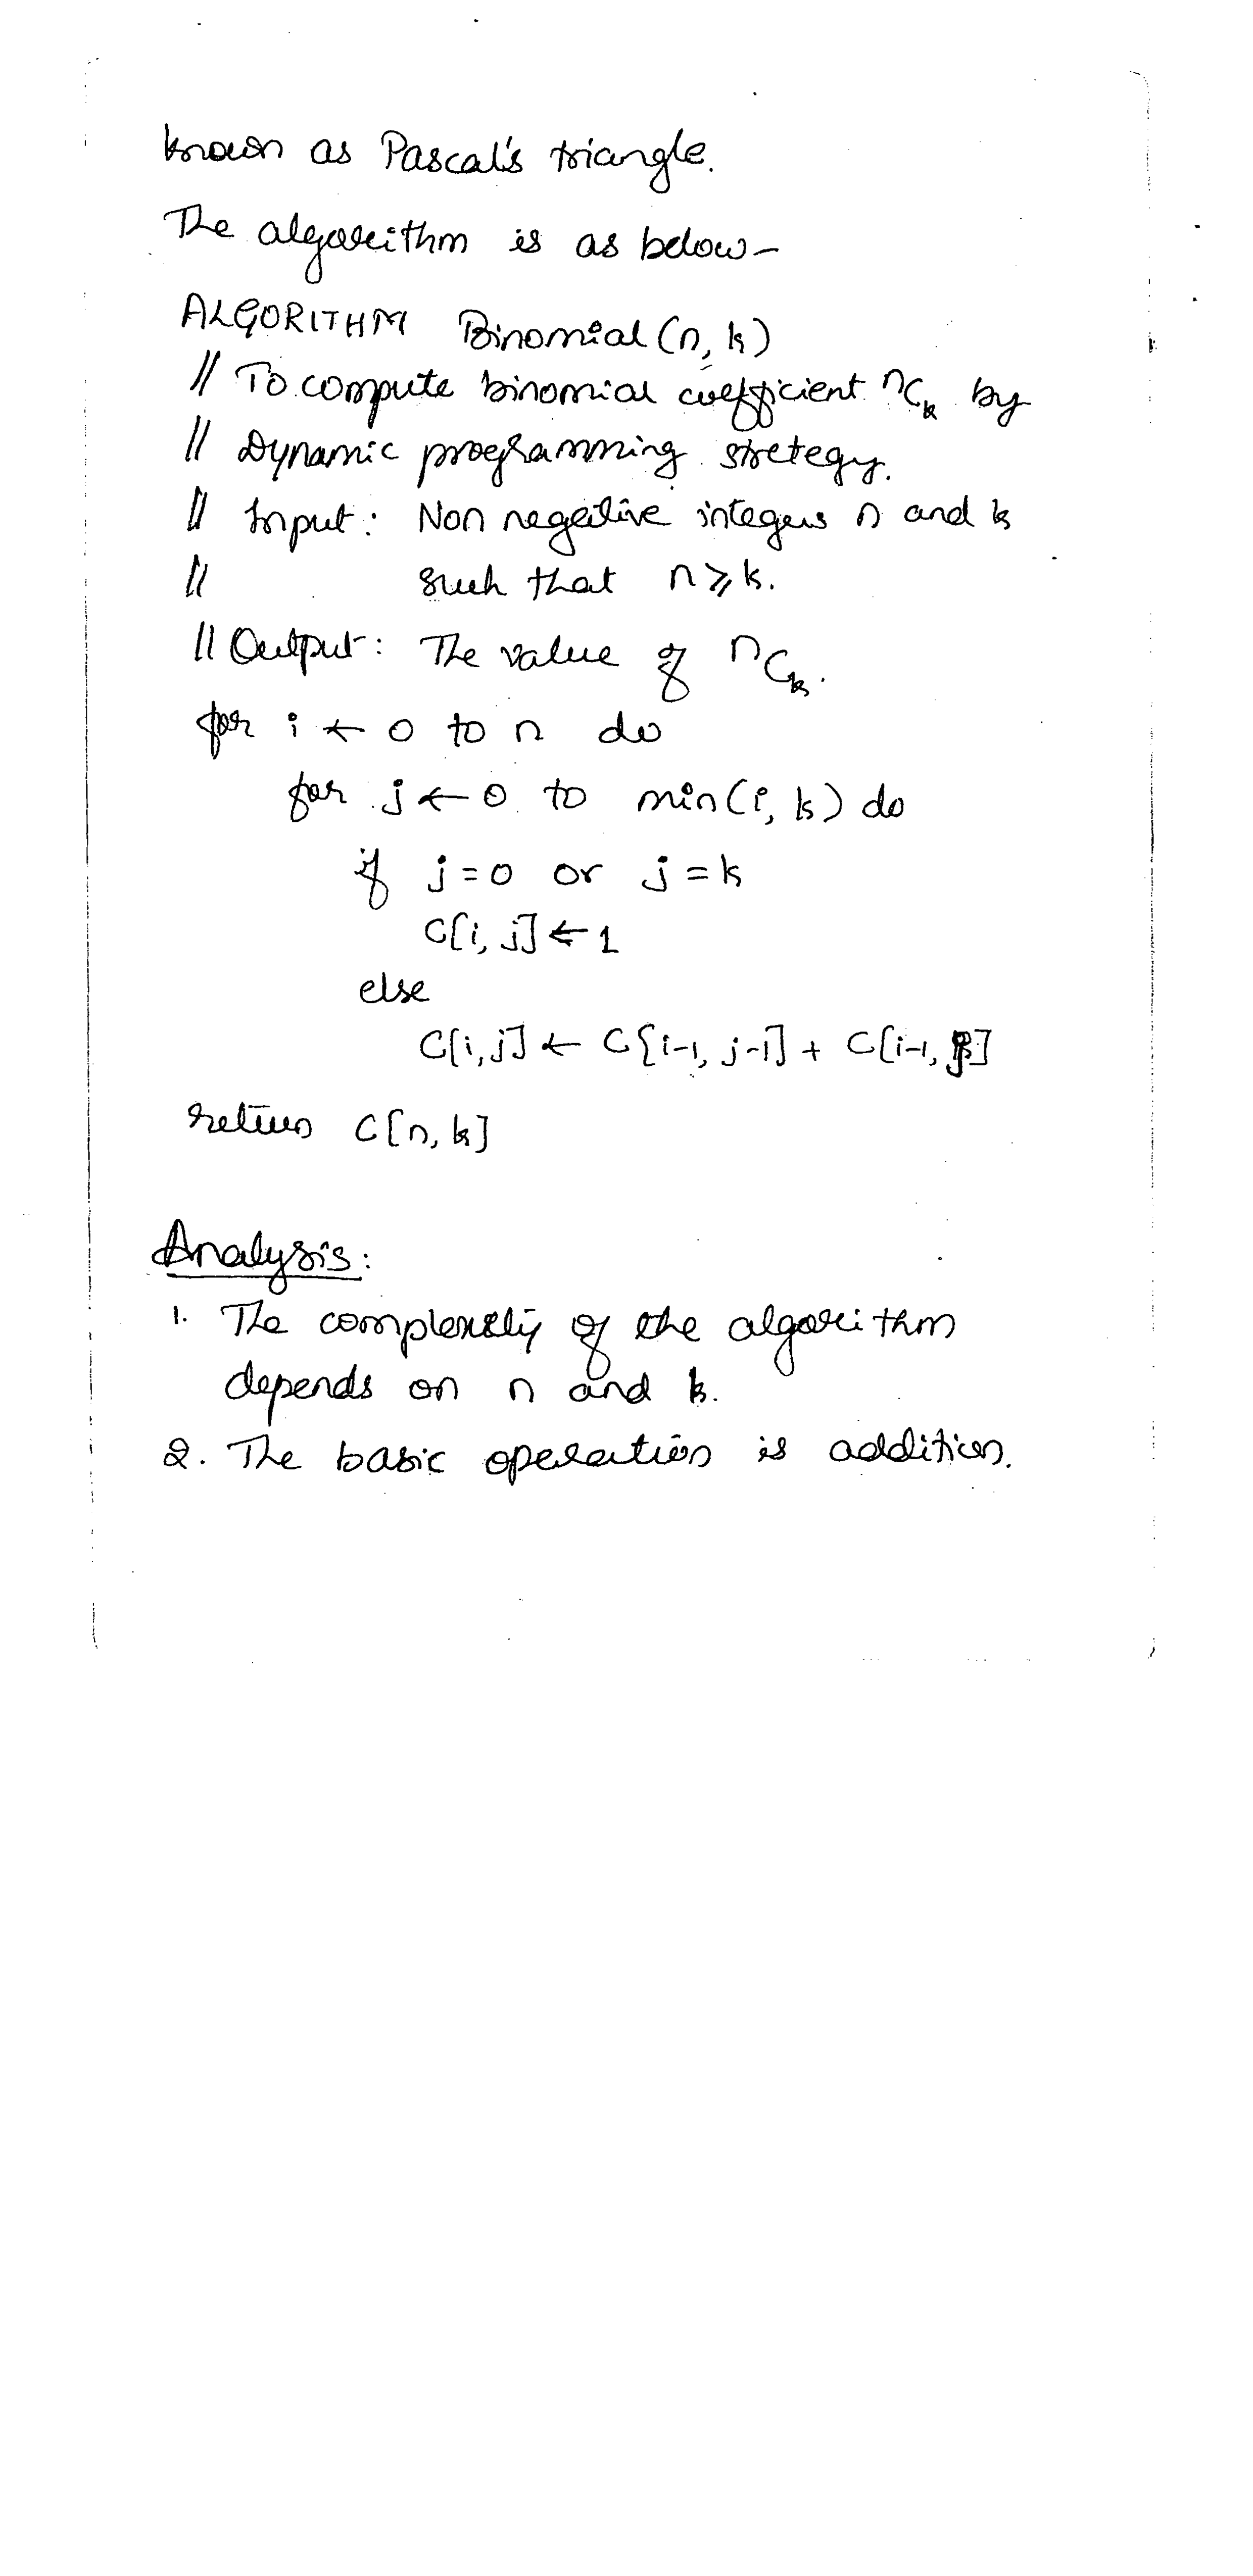 known as Pascal's triangle.
The algorithm is as below-
ALGORITHM Binomial(n, k)
// To compute binomial coefficient ⁿCₖ by
// Dynamic programming stretegy.
// Input: Non negative integers n and k
// such that n ⩾ k.
// Output: The value of ⁿCₖ.
for i ← 0 to n do
for j ← 0 to min(i, k) do
if j = 0 or j = k
C[i, j] ← 1
else
C[i, j] ← C{i-1, j-1] + C[i-1, j]
return C[n, k]
Analysis:
1. The complexity of the algorithm
depends on n and k.
2. The basic operation is addition.